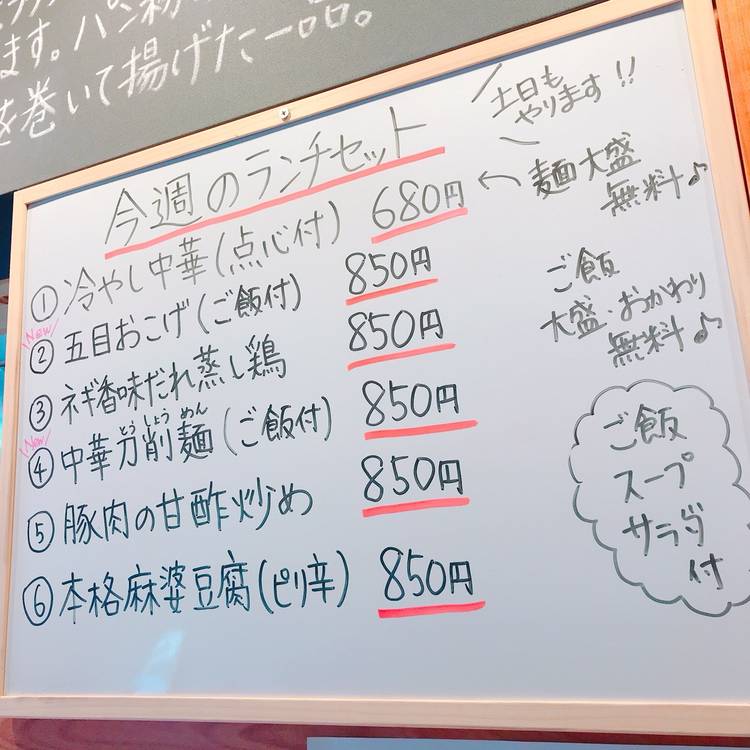 ます。パン粉
を巻いて揚げた一品。
土日も
やります!!
今週のランチセット
① 冷やし中華(点心付) 680円 ← 麺大盛
無料♪
New
② 五目おこげ(ご飯付) 850円
③ ネギ香味だれ蒸し鶏 850円
New
とうしょうめん
④ 中華刀削麺(ご飯付) 850円
⑤ 豚肉の甘酢炒め 850円
⑥ 本格麻婆豆腐(ピリ辛) 850円
ご飯
大盛・おかわり
無料♪
ご飯
スープ
サラダ
付